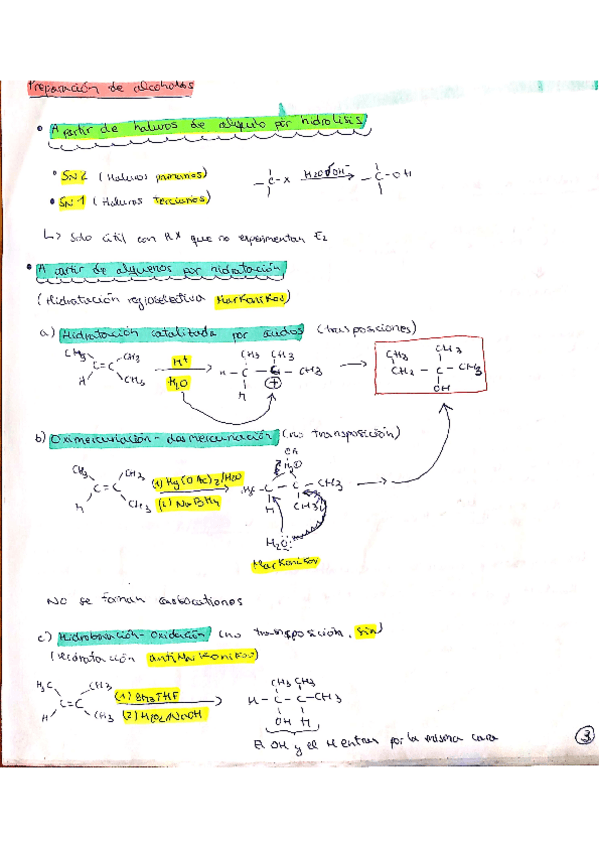 Preparación de alcoholes
• A partir de haluros de alquilo por hidrolisis
• SN2 (Haluros primarios)
• SN1 (Haluros terciarios)
-C-X H2O / OH⁻ → -C-OH
↳ Solo útil con RX que no experimentan E2
• A partir de alquenos por hidratación
(Hidratación regioselectiva Markonikov)
a) Hidratación catalizada por ácidos (trasposiciones)
CH3 CH3 C=C H CH3
H+
H2O
CH3 CH3
H-C-C-CH3
H ⊕
CH3 CH3
CH2-C-CH3
OH
b) Oximercuriación - desmercuriación (no transposición)
CH3 CH3 C=C H CH3
(1) Hg(OAc)2/H2O
(2) NaBH4
C-C-CH3
H CH3
H2O:
Markonikov
No se forman carbocationes
c) Hidroboración-Oxidación (no transposición, sin)
(Hidratación antiMarkonikov)
H3C CH3 C=C H CH3
(1) BH3 THF
(2) H2O2/NaOH
CH3 CH3
H-C-C-CH3
OH H
El OH y el H entran por la misma cara
3